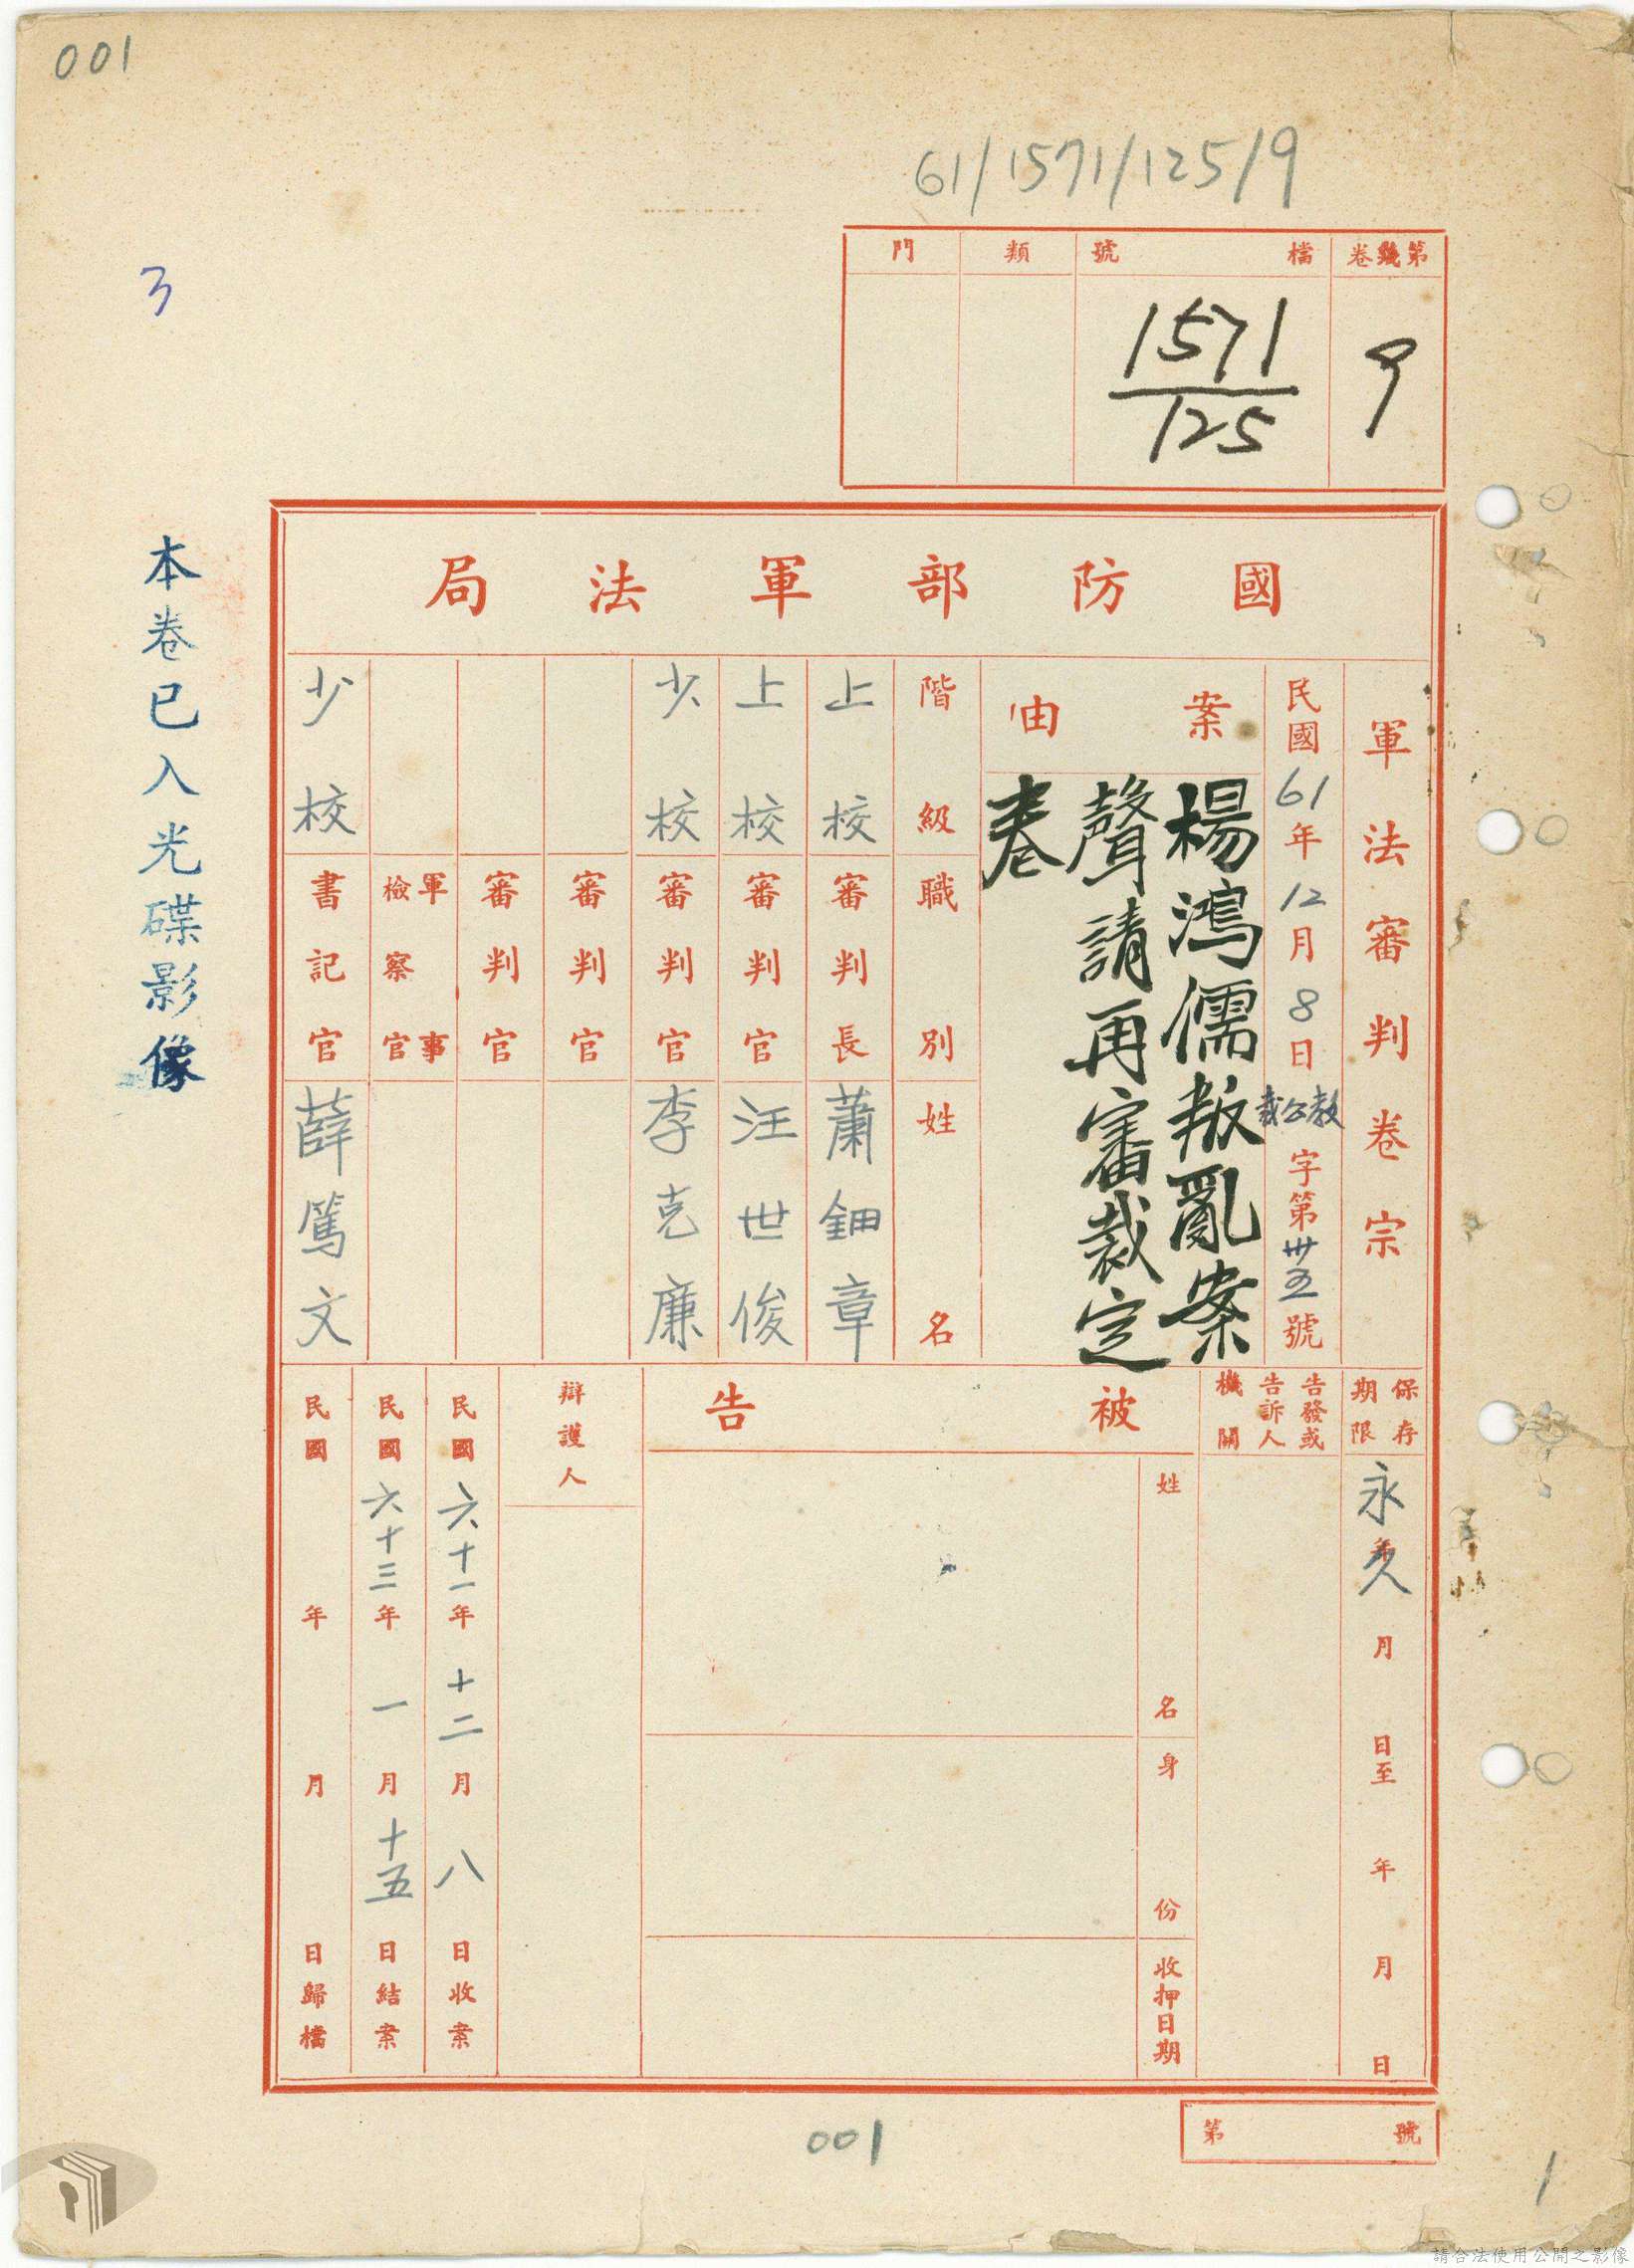 001
61/1571/125/9
3
第幾卷
9
檔號
1571
125
類
門
本卷已入光碟影像
國防部軍法局
軍法審判卷宗
民國61年12月8日
字第卅五號
案由
楊鴻儒叛亂案
聲請再審裁定
卷
階級 職別 姓名
上校 審判長 蕭鈿章
上校 審判官 汪世俊
少校 審判官 李克廉
審判官
審判官
軍事檢察官
少校 書記官 薛篤文
保存期限
永久
年月日至年月日
告發或告訴人機關
被告
姓名
身份
收押日期
辯護人
民國六十一年十二月八日收案
民國六十三年一月十五日結案
民國年月日歸檔
第號
001
1
請合法使用公開之影像